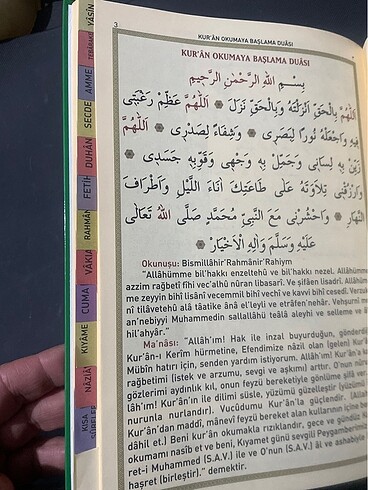 3
KUR'ÂN OKUMAYA BAŞLAMA DUÂSI
KUR'ÂN OKUMAYA BAŞLAMA DUÂSI
بِسْمِ اللهِ الرَّحْمٰنِ الرَّحِيمِ
اَللّٰهُمَّ بِالْحَقِّ اَنْزَلْتَهُ وَبِالْحَقِّ نَزَلَ اَللّٰهُمَّ عَظِّمْ رَغْبَتِى
فِيهِ وَاجْعَلْهُ نُورًا لِبَصَرِى وَشِفَاءً لِصَدْرِى اَللّٰهُمَّ
زَيِّنْ بِهِ لِسَانِى وَجَمِّلْ بِهِ وَجْهِى وَقَوِّ بِهِ جَسَدِى
وَارْزُقْنِى تِلَاوَتَهُ عَلٰى طَاعَتِكَ اٰنَاءَ اللَّيْلِ وَاَطْرَافَ
النَّهَارِ وَاحْشُرْنِى مَعَ النَّبِىِّ مُحَمَّدٍ صَلَّى اللهُ تَعَالٰى
عَلَيْهِ وَسَلَّمَ وَاٰلِهِ الْاَخْيَارِ
Okunuşu: Bismillâhir'Rahmânir'Rahiym
"Allâhümme bil'hakkı enzeltehü ve bil'hakkı nezel. Allâhümme
azzim rağbetî fîhi vec'alhü nûran libasarî. Ve şifâen lisadrî. Allâhüm
me zeyyin bihî lisânî vecemmil bihî vechî ve kavvi bihî cesedî. Verzuk
nî tilâvetehü alâ tâatike ânâ el'leyli ve etrâfen'nehâr. Vehşurnî me
an'nebiyyi Muhammedin sallallâhü teâlâ aleyhi ve selleme ve âl
hil'ahyâr."
Ma'nâsı: "Allâh'ım! Hak ile inzal buyurduğun, gönderdiğ
Kur'ân-ı Kerîm hürmetine, Efendimize nâzil olan (gelen) Kur'ân
Mübîn hatırı için, senden yardım istiyorum. Allâh'ım! Kur'ân'a ka
rağbetimi (istek ve arzumu, sevgi ve aşkımı) arttır. O'nun nûru
gözlerimi aydınlık kıl, onun feyzü bereketiyle gönlüme şifâ ver.
lâh'ım! Kur'ân'ın ile dilimi süsle, yüzümü güzelleştir (yüzümü
nurunla nurlandır). Vucûdumu Kur'ân'la güçlendir. (Allah
Kur'ân'dan maddî, mânevî feyzü bereket alan kullarının içine be
dâhil et.) Beni kur'ân okumakla rızıklandır, gece ve gündüz
okumamı nasîb et ve beni, Kıyamet günü sevgili Peygamberimi
ret-i Muhammed (S.A.V.) ile ve O'nun (S.A.V.) âl ve ashabiyle
haşret (birleştir)." demektir.
YÂSÎN
TEBÂREKE
AMME
SECDE
DUHÂN
FETİH
RAHMÂN
VÂKIA
CUMA
KIYÂME
NÂZİÂT
KISA
SÛRELER